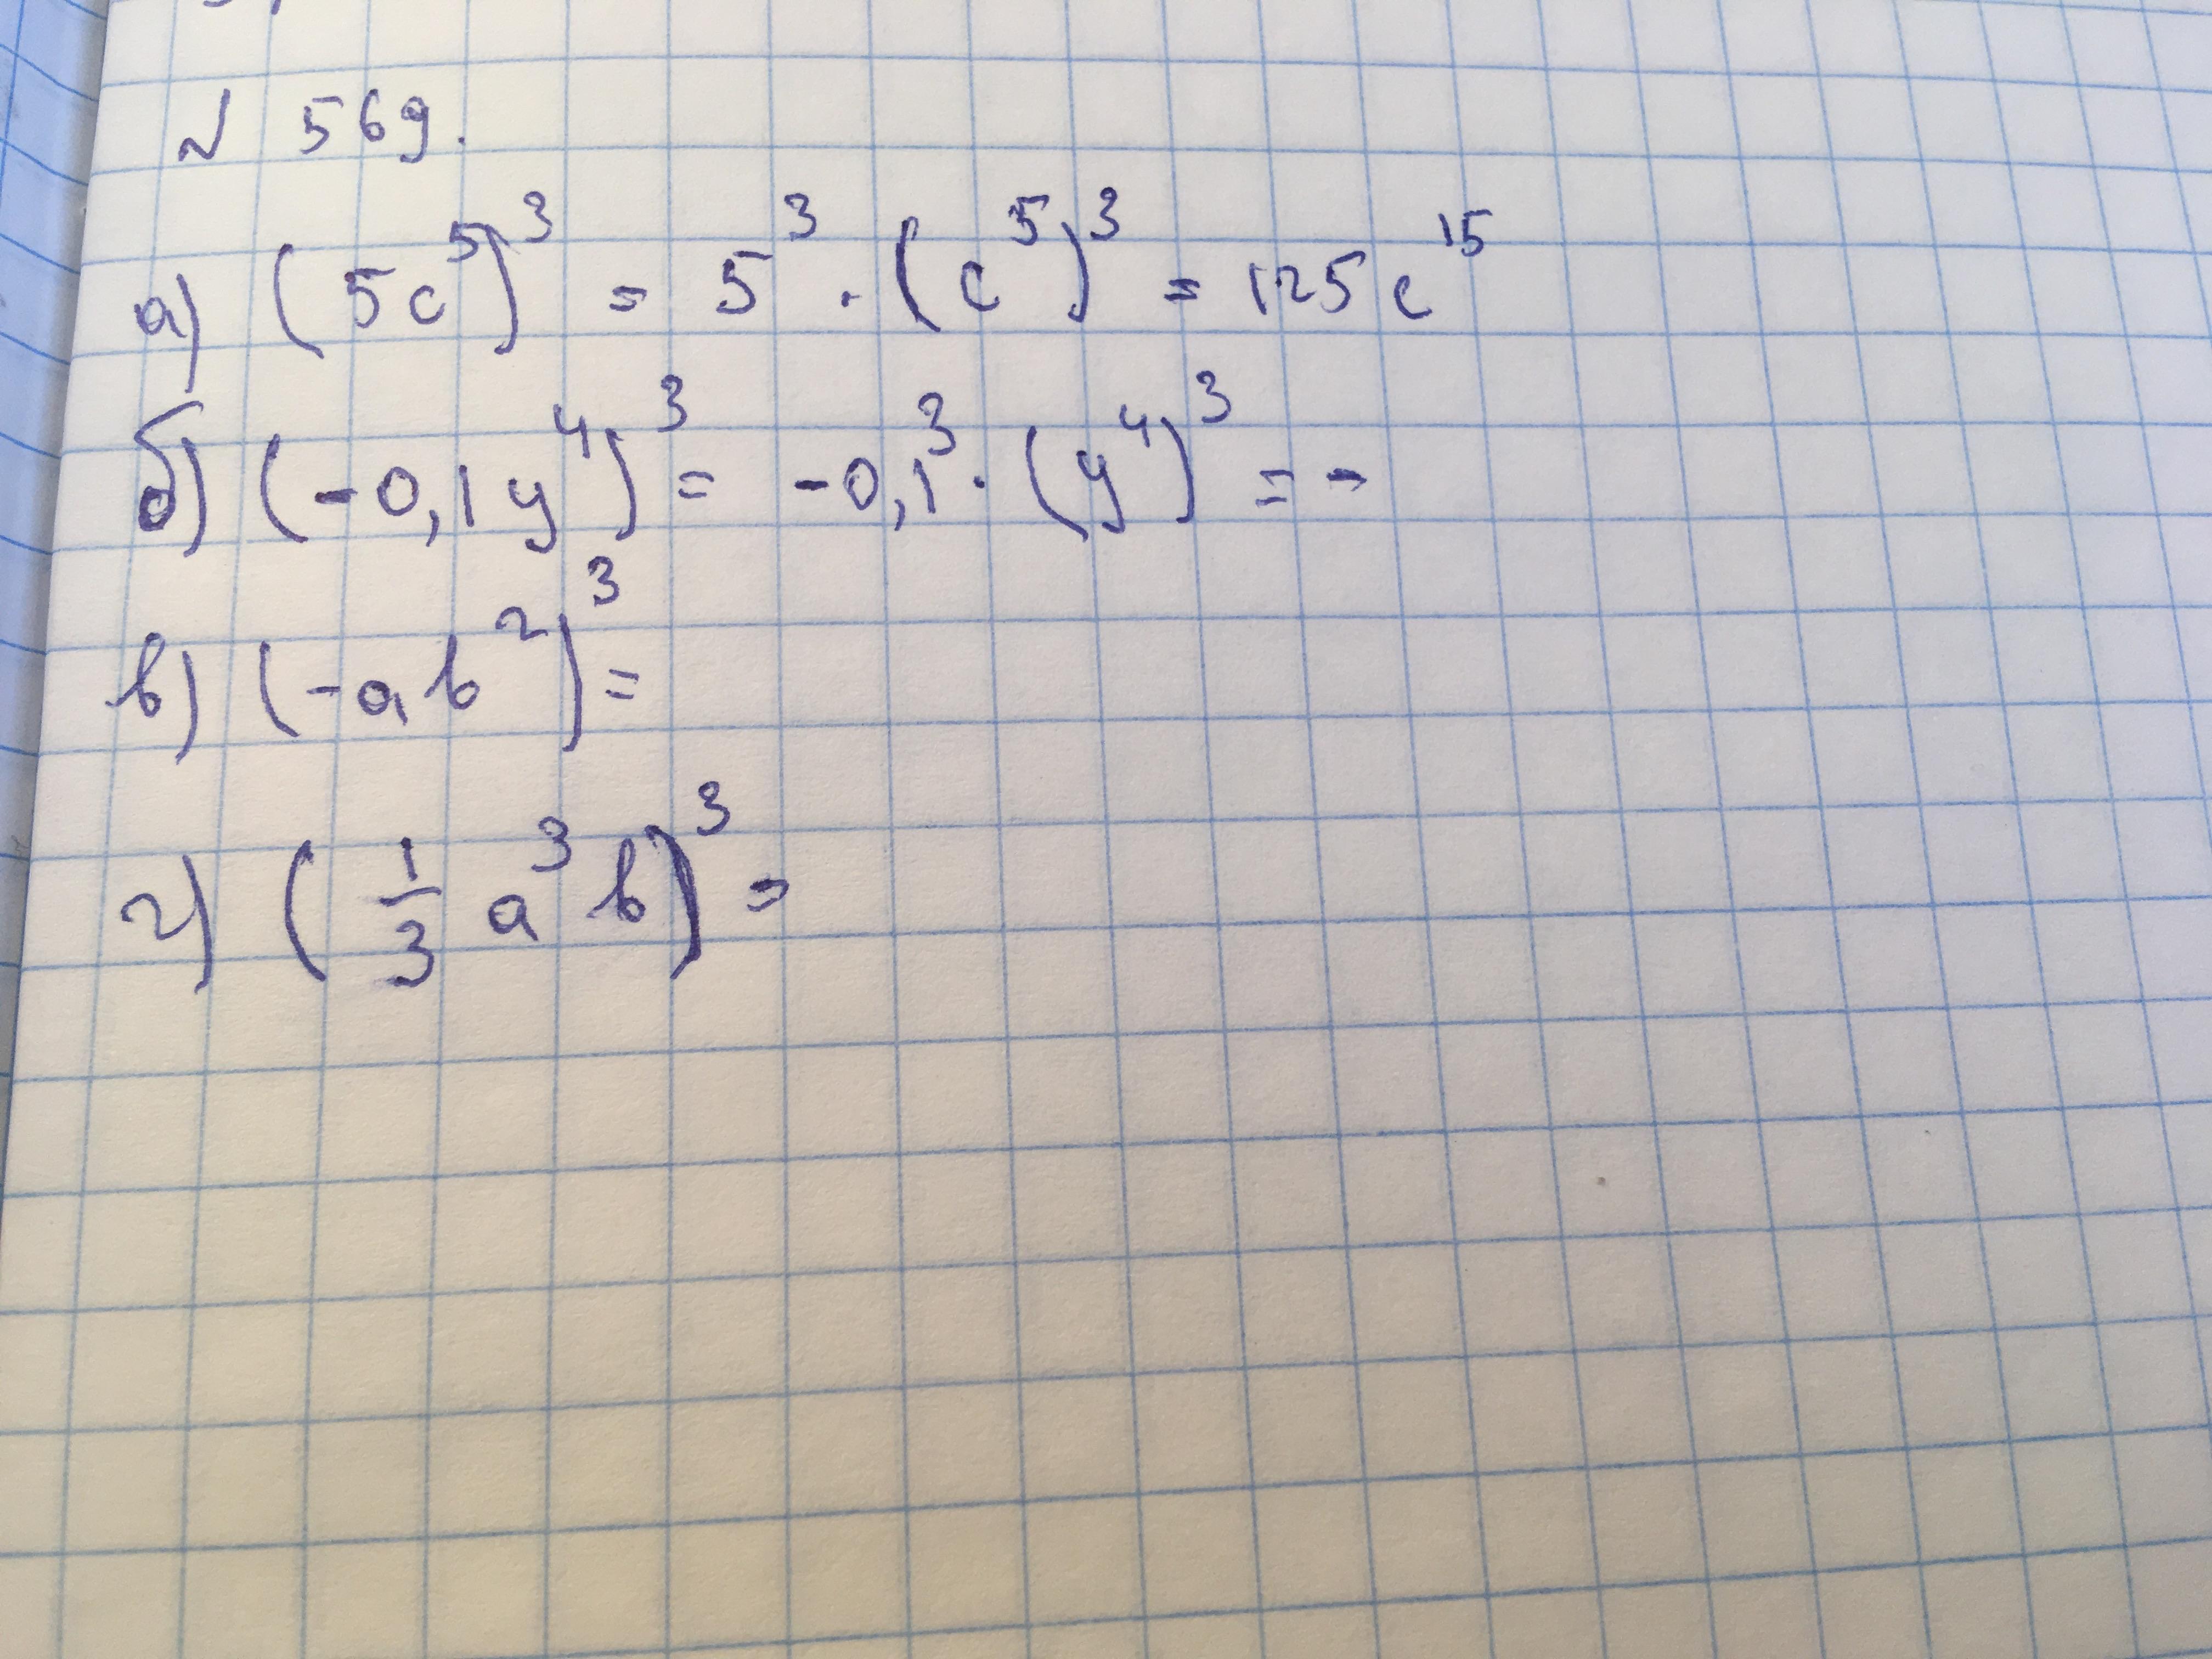 № 569.
а) (5c⁵)³ = 5³ · (c⁵)³ = 125c¹⁵
б) (-0,1y⁴)³ = -0,1³ · (y⁴)³ = -
в) (-ab²)³ =
г) (1/3 a³b)³ =